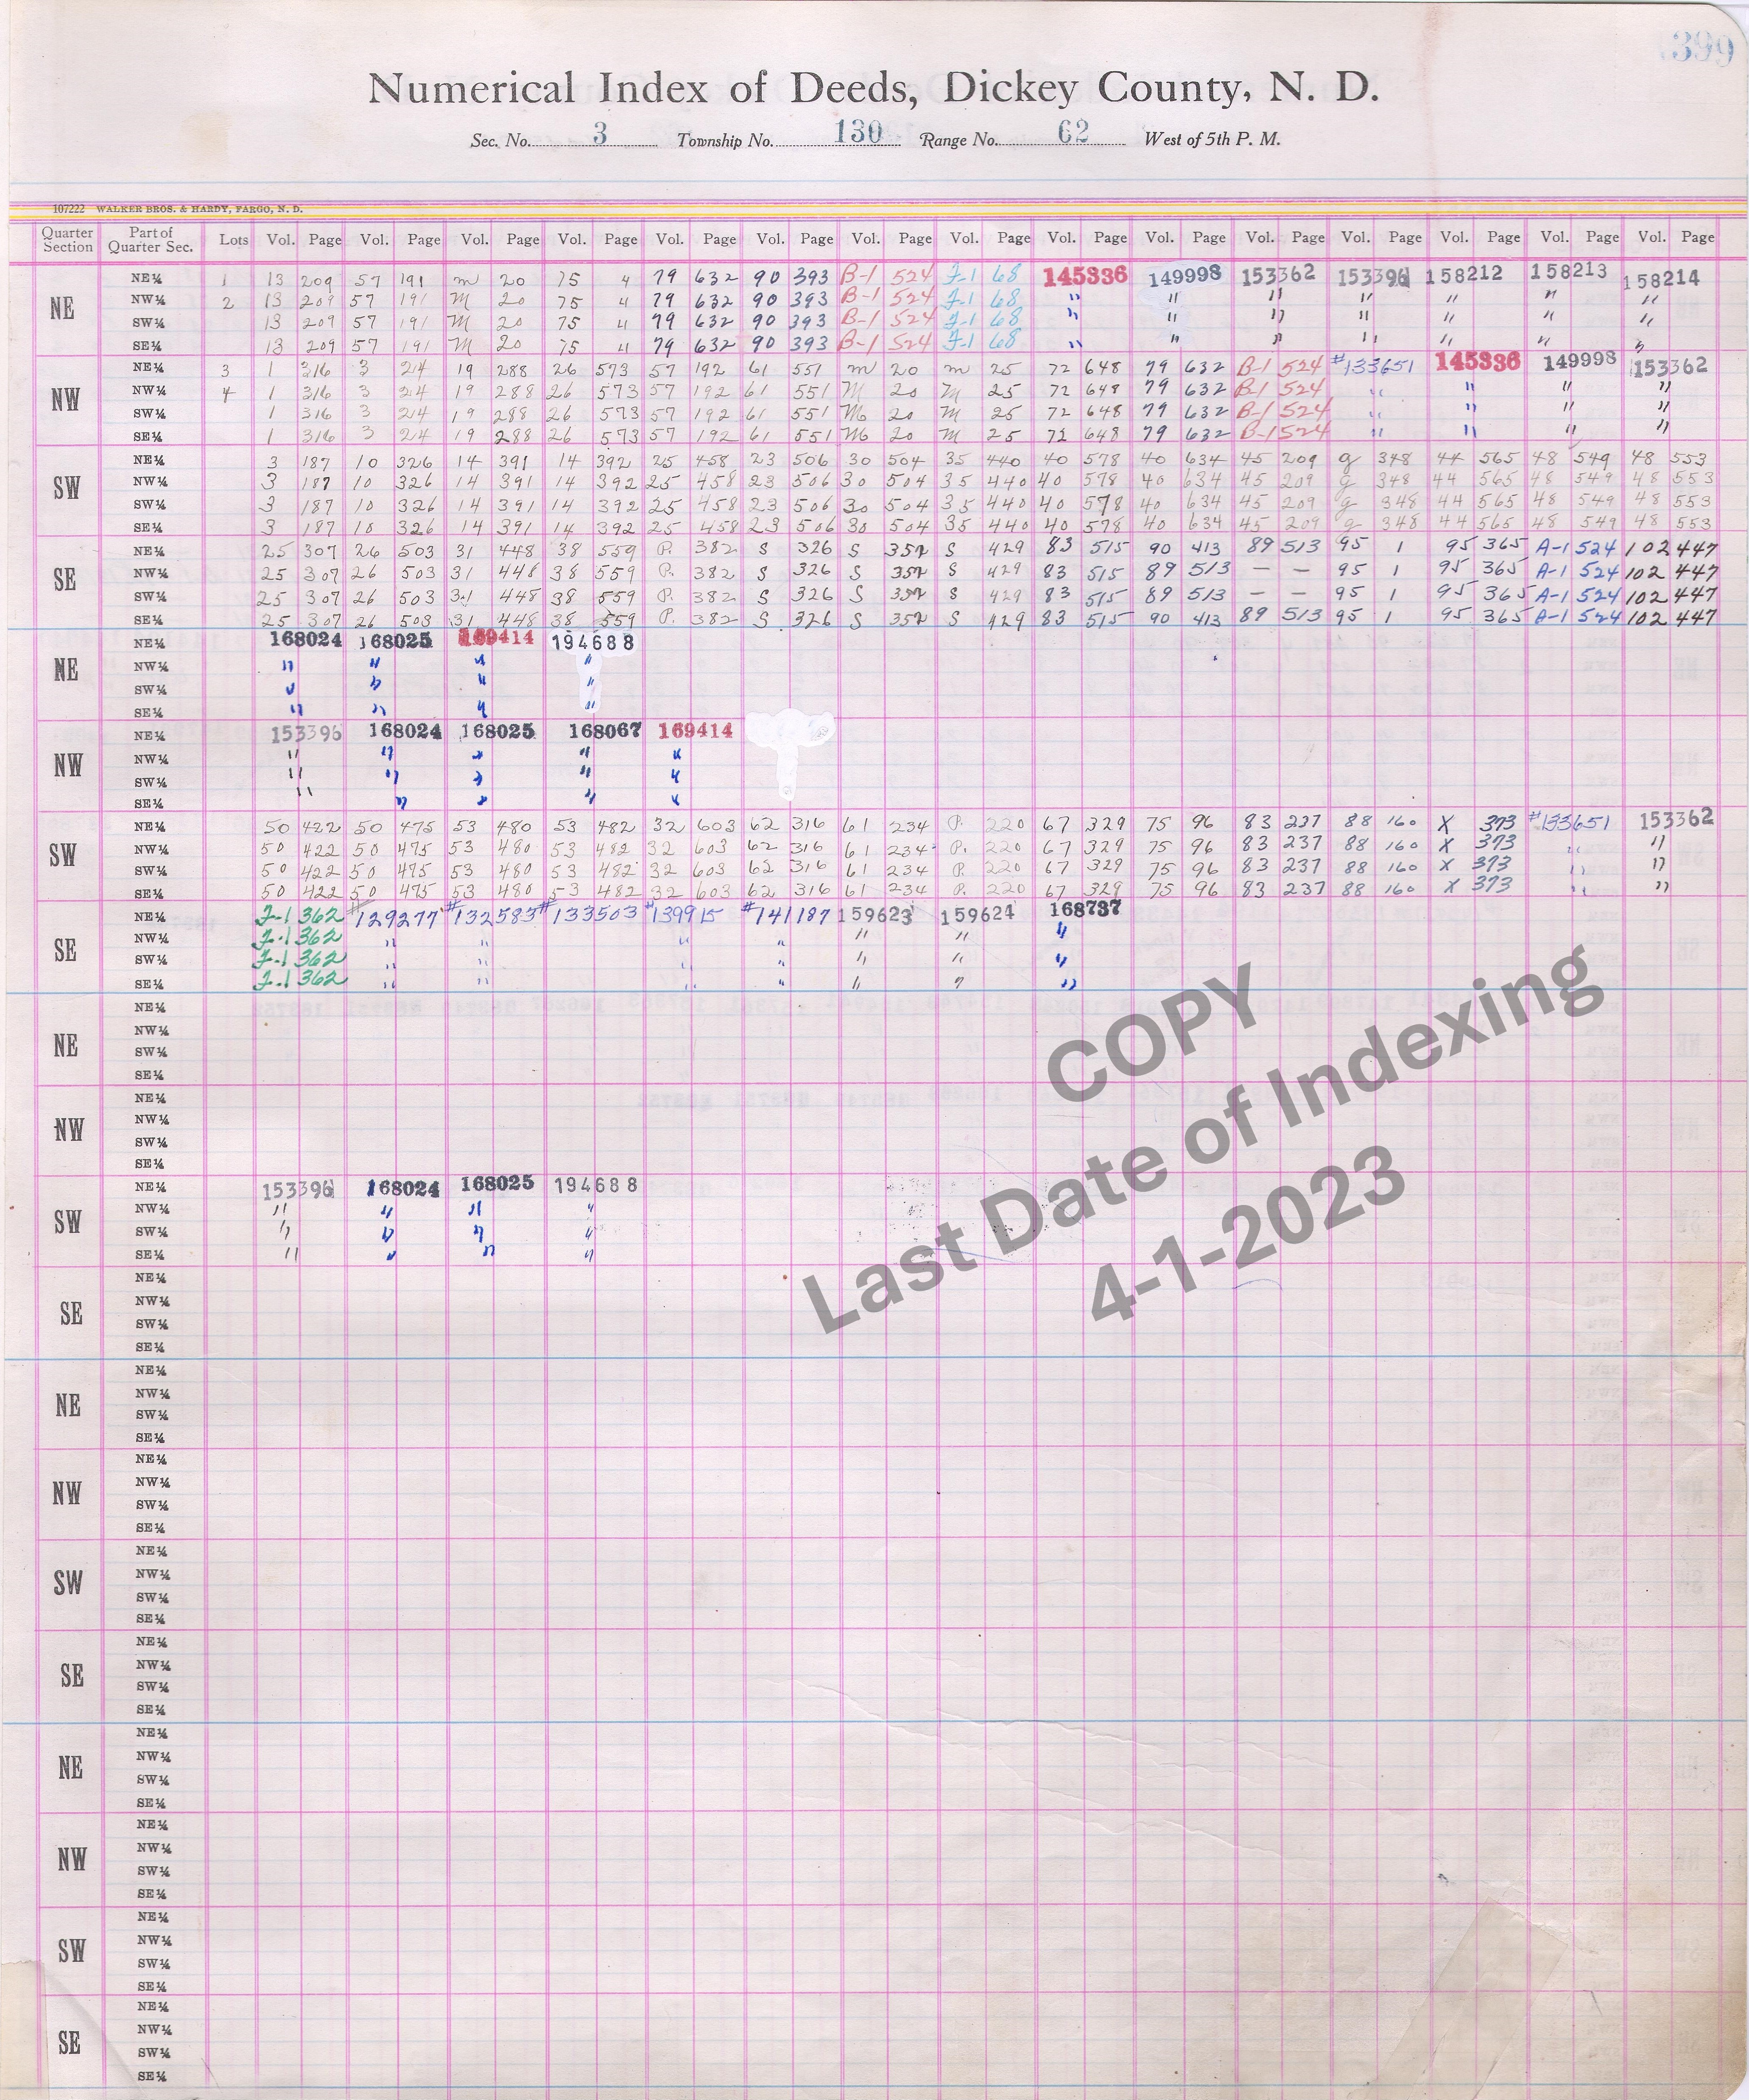 399
Numerical Index of Deeds, Dickey County, N. D.
Sec. No. 3 Township No. 130 Range No. 62 West of 5th P. M.
107222 WALKER BROS. & HARDY, FARGO, N. D.
Quarter Section Part of Quarter Sec. Lots Vol. Page Vol. Page Vol. Page Vol. Page Vol. Page Vol. Page Vol. Page Vol. Page Vol. Page Vol. Page Vol. Page Vol. Page Vol. Page Vol. Page Vol. Page
NE
NE¼ 1 13 209 57 191 M 20 75 4 79 632 90 393 B-1 524 J-1 68 145336 149998 153362 153396 158212 158213 158214
NW¼ 2 13 209 57 191 M 20 75 4 79 632 90 393 B-1 524 J-1 68 " " " " " " "
SW¼ 13 209 57 191 M 20 75 4 79 632 90 393 B-1 524 J-1 68 " " " " " " "
SE¼ 13 209 57 191 M 20 75 4 79 632 90 393 B-1 524 J-1 68 " " " " " " "
NW
NE¼ 3 1 316 3 24 19 288 26 573 57 192 61 551 M 20 M 25 72 648 79 632 B-1 524 #133651 145336 149998 153362
NW¼ 4 1 316 3 24 19 288 26 573 57 192 61 551 M 20 M 25 72 648 79 632 B-1 524 " " " "
SW¼ 1 316 3 24 19 288 26 573 57 192 61 551 M 20 M 25 72 648 79 632 B-1 524 " " " "
SE¼ 1 316 3 24 19 288 26 573 57 192 61 551 M 20 M 25 72 648 79 632 B-1 524 " " " "
SW
NE¼ 3 187 10 326 14 391 14 392 25 458 23 506 30 504 35 440 40 578 40 634 45 209 g 348 44 565 48 549 48 553
NW¼ 3 187 10 326 14 391 14 392 25 458 23 506 30 504 35 440 40 578 40 634 45 209 g 348 44 565 48 549 48 553
SW¼ 3 187 10 326 14 391 14 392 25 458 23 506 30 504 35 440 40 578 40 634 45 209 g 348 44 565 48 549 48 553
SE¼ 3 187 10 326 14 391 14 392 25 458 23 506 30 504 35 440 40 578 40 634 45 209 g 348 44 565 48 549 48 553
SE
NE¼ 25 307 26 503 31 448 38 559 P. 382 S 326 S S 429 83 515 90 413 89 513 95 1 95 365 A-1 524 102 447
NW¼ 25 307 26 503 31 448 38 559 P. 382 S 326 S S 429 83 515 89 513 — — 95 1 95 365 A-1 524 102 447
SW¼ 25 307 26 503 31 448 38 559 P. 382 S 326 S S 429 83 515 89 513 — — 95 1 95 365 A-1 524 102 447
SE¼ 25 307 26 503 31 448 38 559 P. 382 S 326 S S 429 83 515 90 413 89 513 95 1 95 365 A-1 524 102 447
NE
NE¼ 168024 168025 169414 194688
NW¼ " " " "
SW¼ " " " "
SE¼ " " " "
NW
NE¼ 153396 168024 168025 168067 169414
NW¼ " " " " "
SW¼ " " " " "
SE¼ " " " " "
SW
NE¼ 50 422 50 475 53 480 53 482 32 603 62 316 61 234 P. 220 67 329 75 96 83 237 88 160 X 373 #133651 153362
NW¼ 50 422 50 475 53 480 53 482 32 603 62 316 61 234 P. 220 67 329 75 96 83 237 88 160 X 373 " "
SW¼ 50 422 50 475 53 480 53 482 32 603 62 316 61 234 P. 220 67 329 75 96 83 237 88 160 X 373 " "
SE¼ 50 422 50 475 53 480 53 482 32 603 62 316 61 234 P. 220 67 329 75 96 83 237 88 160 X 373 " "
SE
NE¼ J-1 362 #129277 #132583 #133503 #139915 #141187 159623 159624 168737
NW¼ J-1 362 " " " " " " "
SW¼ J-1 362 " " " " " "
SE¼ J-1 362 " " " " " " "
NE
NE¼
NW¼
SW¼
SE¼
NW
NE¼
NW¼
SW¼
SE¼
SW
NE¼ 153396 168024 168025 194688
NW¼ " " " "
SW¼ " " " "
SE¼ " " " "
SE
NE¼
NW¼
SW¼
SE¼
NE
NE¼
NW¼
SW¼
SE¼
NW
NE¼
NW¼
SW¼
SE¼
SW
NE¼
NW¼
SW¼
SE¼
SE
NE¼
NW¼
SW¼
SE¼
NE
NE¼
NW¼
SW¼
SE¼
NW
NE¼
NW¼
SW¼
SE¼
SW
NE¼
NW¼
SW¼
SE¼
SE
NE¼
NW¼
SW¼
SE¼
COPY
Last Date of Indexing
4-1-2023